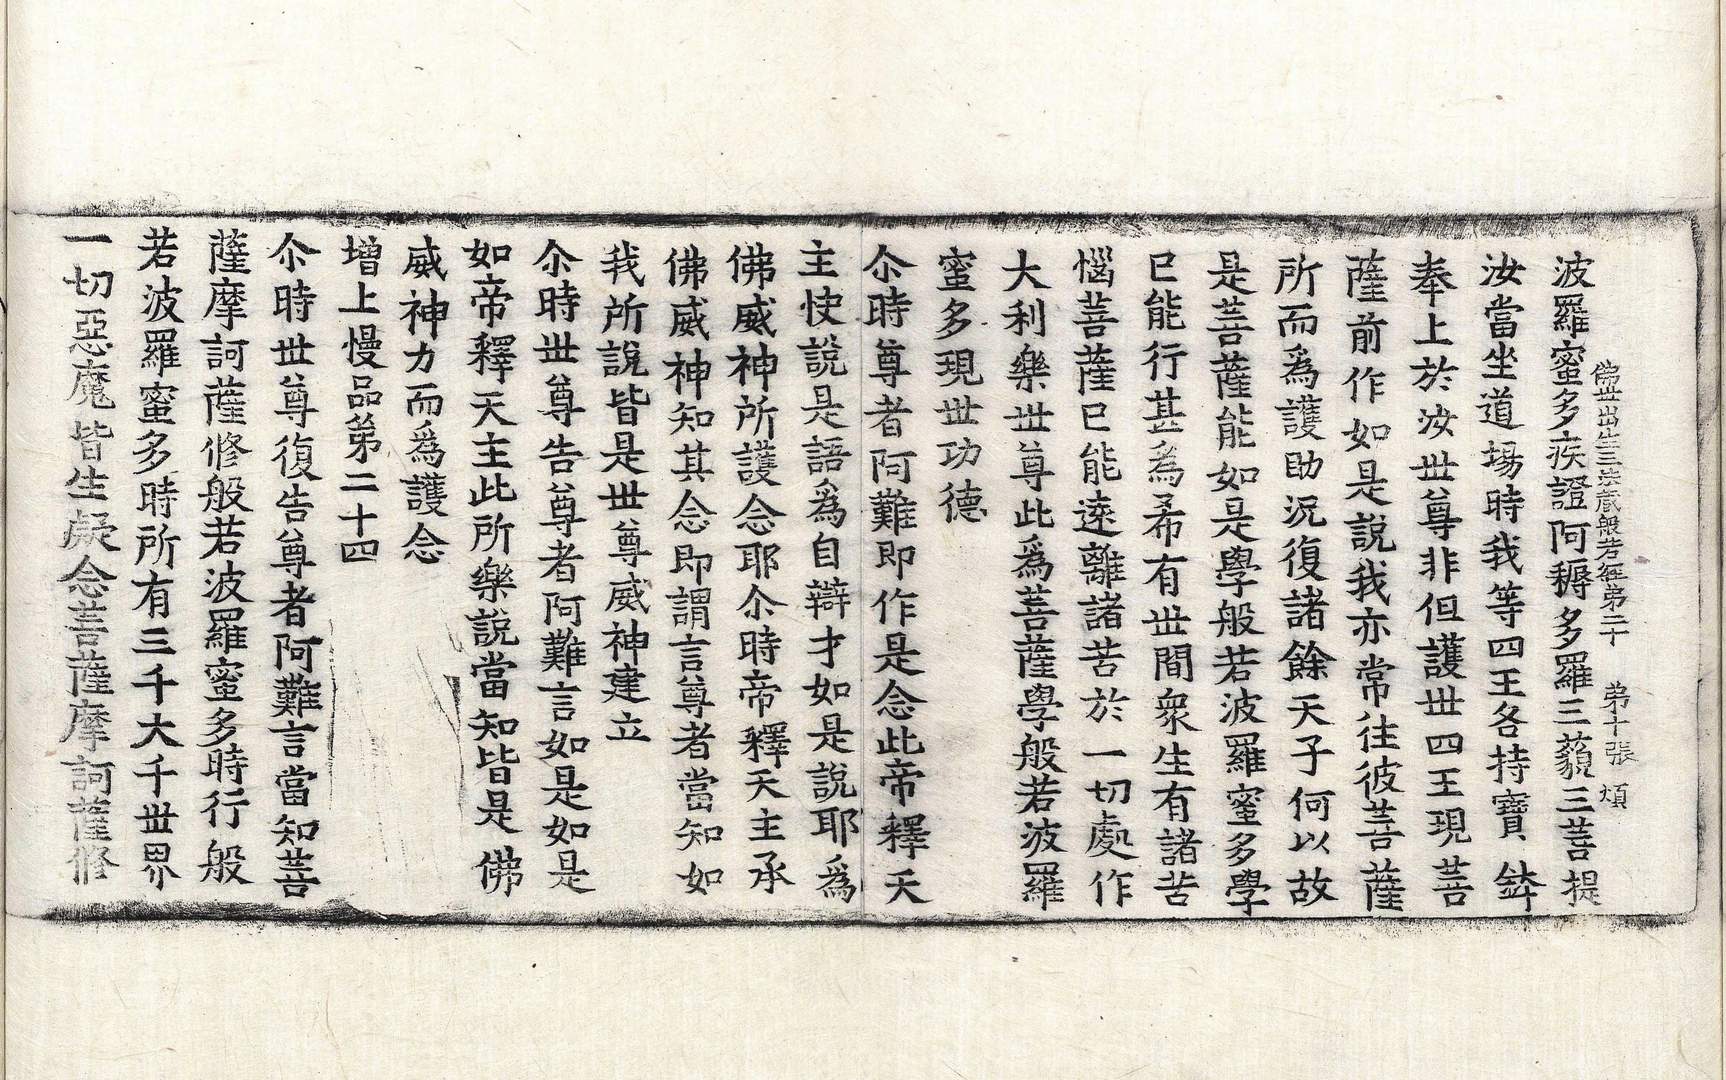 佛世出生三法藏般若經第二十　第十張　煩
波羅蜜多疾證阿耨多羅三藐三菩提
汝當坐道場時我等四王各持寶鉢
奉上於汝世尊非但護世四王現菩
薩前作如是說我亦常往彼菩薩
所而爲護助況復諸餘天子何以故
是菩薩能如是學般若波羅蜜多學
已能行甚爲希有世間衆生有諸苦
惱菩薩已能遠離諸苦於一切處作
大利樂世尊此爲菩薩學般若波羅
蜜多現世功德
尒時尊者阿難即作是念此帝釋天
主使說是語爲自辯才如是說耶爲
佛威神所護念耶尒時帝釋天主承
佛威神知其念即謂言尊者當知如
我所說皆是世尊威神建立
尒時世尊告尊者阿難言如是如是
如帝釋天主此所樂說當知皆是佛
威神力而爲護念
增上慢品第二十四
尒時世尊復告尊者阿難言當知菩
薩摩訶薩修般若波羅蜜多時行般
若波羅蜜多時所有三千大千世界
一切惡魔皆生疑念菩薩摩訶薩修